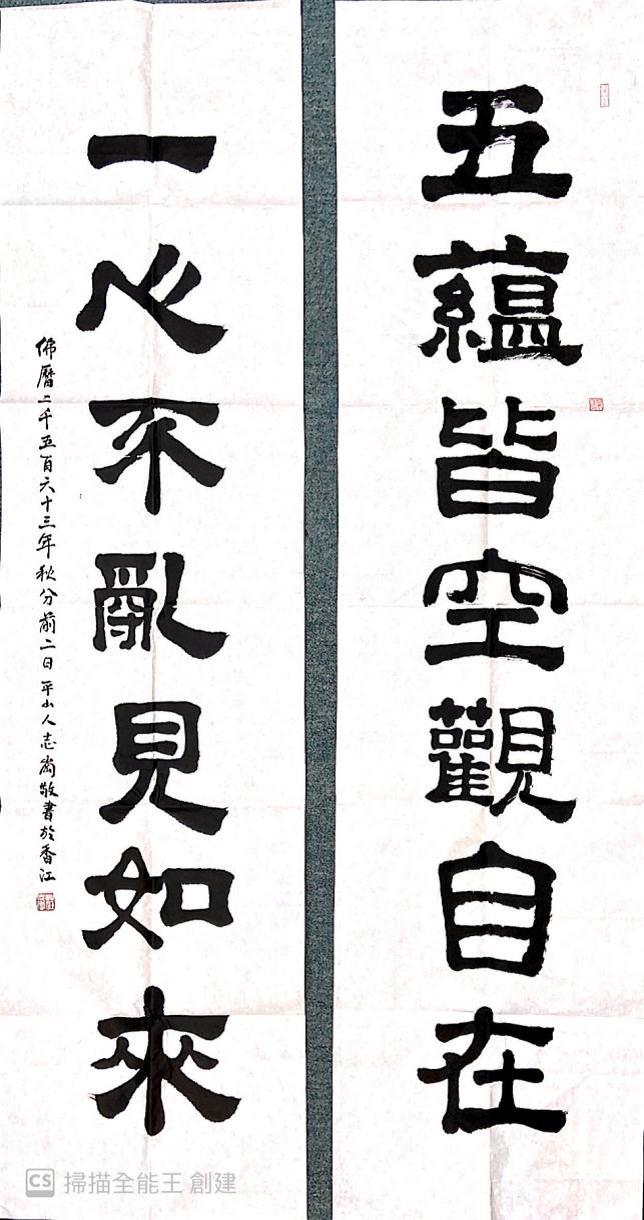 五蘊皆空觀自在
一心不亂見如來
佛曆二千五百六十三年秋分前二日平山人志尚敬書於香江
CS 掃描全能王 創建